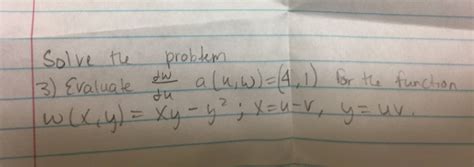 Solve the problem
3) Evaluate dw/du a(u,w)=(4,1) for the function
w(x,y) = xy-y²; x=u-v, y=uv.